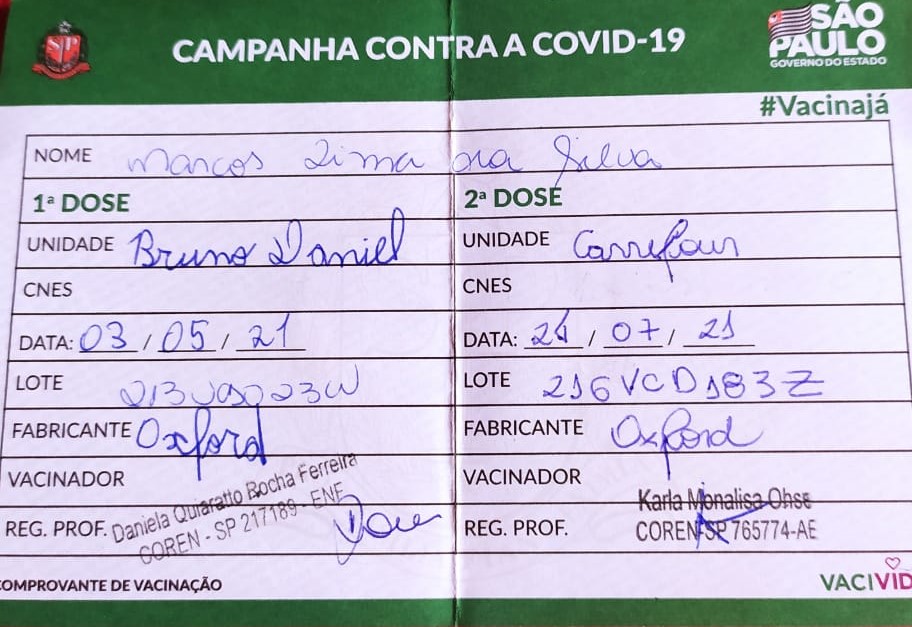 SP
CAMPANHA CONTRA A COVID-19
SÃO
PAULO
GOVERNO DO ESTADO
#Vacinajá
NOME Marcos Lima da Silva
1ª DOSE
UNIDADE Bruno Daniel
CNES
DATA: 03 / 05 / 21
LOTE
FABRICANTE Oxford
VACINADOR
REG. PROF. Daniela Quiaratto Rocha Ferreira
COREN - SP 217189 - ENF
COMPROVANTE DE VACINAÇÃO
2ª DOSE
UNIDADE Carrefour
CNES
DATA: 24 / 07 / 21
LOTE 216VCD183Z
FABRICANTE Oxford
VACINADOR
Karla Monalisa Ohse
REG. PROF. COREN-SP 765774-AE
VACIVID